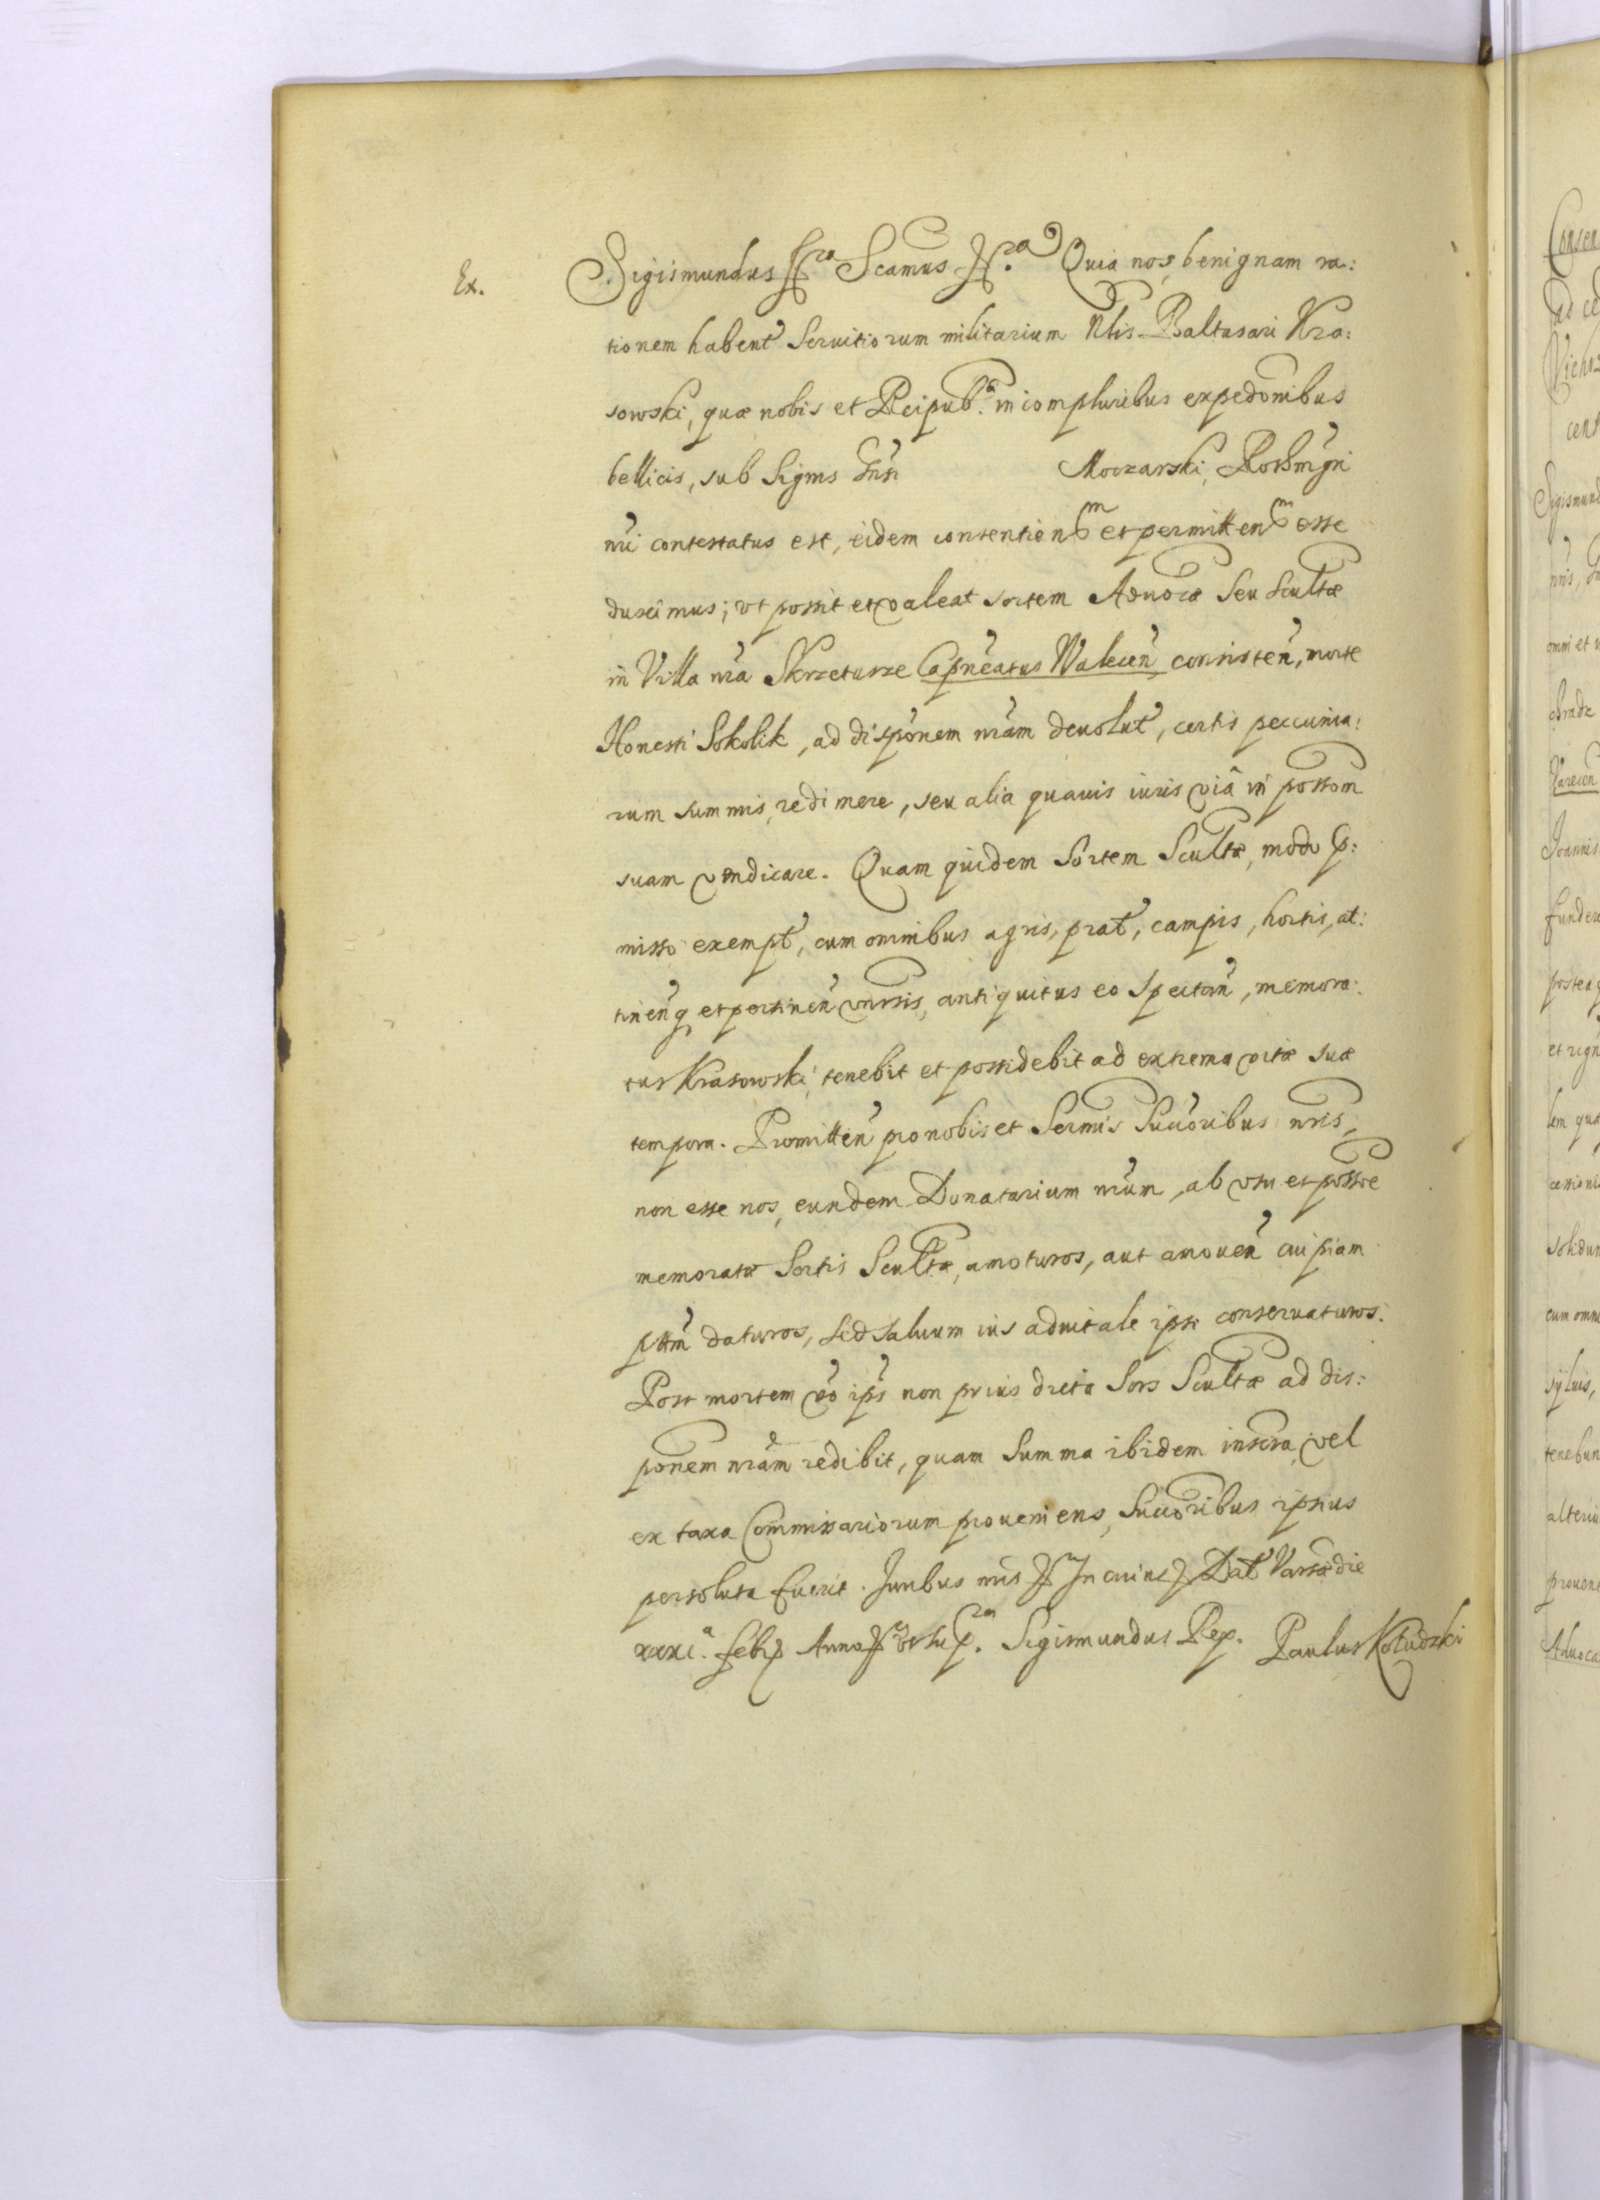 Ex.
Sigismundus &c.ra Scamus &c.ra Quia nos benignam ra:
tionem habent Seruitiorum militarium Nlis Baltasari Kra:
sowski, quæ nobis et Reipub.a in compluribus expedonibus
bellicis, sub Signis Gnsi Moczarski, Rothmgri
nri contestatus est, eidem consentienm et permittenm esse
duximus; vt possit et valeat sortem Aduocæ Seu Scultæ
in Villa nra Skrzetusze Capneatus Walecen consisten, morte
Honesti Sokolik, ad disponem nram deuolut, certis peccunia:
rum summis, redimere, seu alia quauis iuris viâ in possom
suam vendicare. Quam quidem Sortem Scultæ, modo p:
misso exempt, cum omnibus agris, prat, campis, hortis, at:
tinenq et pertinen vnrsis, antiquitus eo Spectan, memora:
tus Krasowski, tenebit et possidebit ad extrema vitæ suæ
tempora. Promitten pro nobis et Sermis Succoribus nris,
non esse nos, eundem Donatarium nrum, ab vsu et possoe
memoratæ Sortis Scultæ, amoturos, aut amouen cuipiam
pttm daturos, sed saluum ius aduitale ipsi conseruaturos.
Post mortem vo ips non prius dicta Sors Scultæ ad dis:
ponem nram redibit, quam Summa ibidem inscra, vel
ex taxa Commissariorum proueniens, Succoribus ipsius
persoluta fuerit. Iuribus nris &c. In cuius &c. Dat Varsæ die
xxxi.a Febr Anno &c. vt sup.ra Sigismundus Rex. Paulus Kołudzki